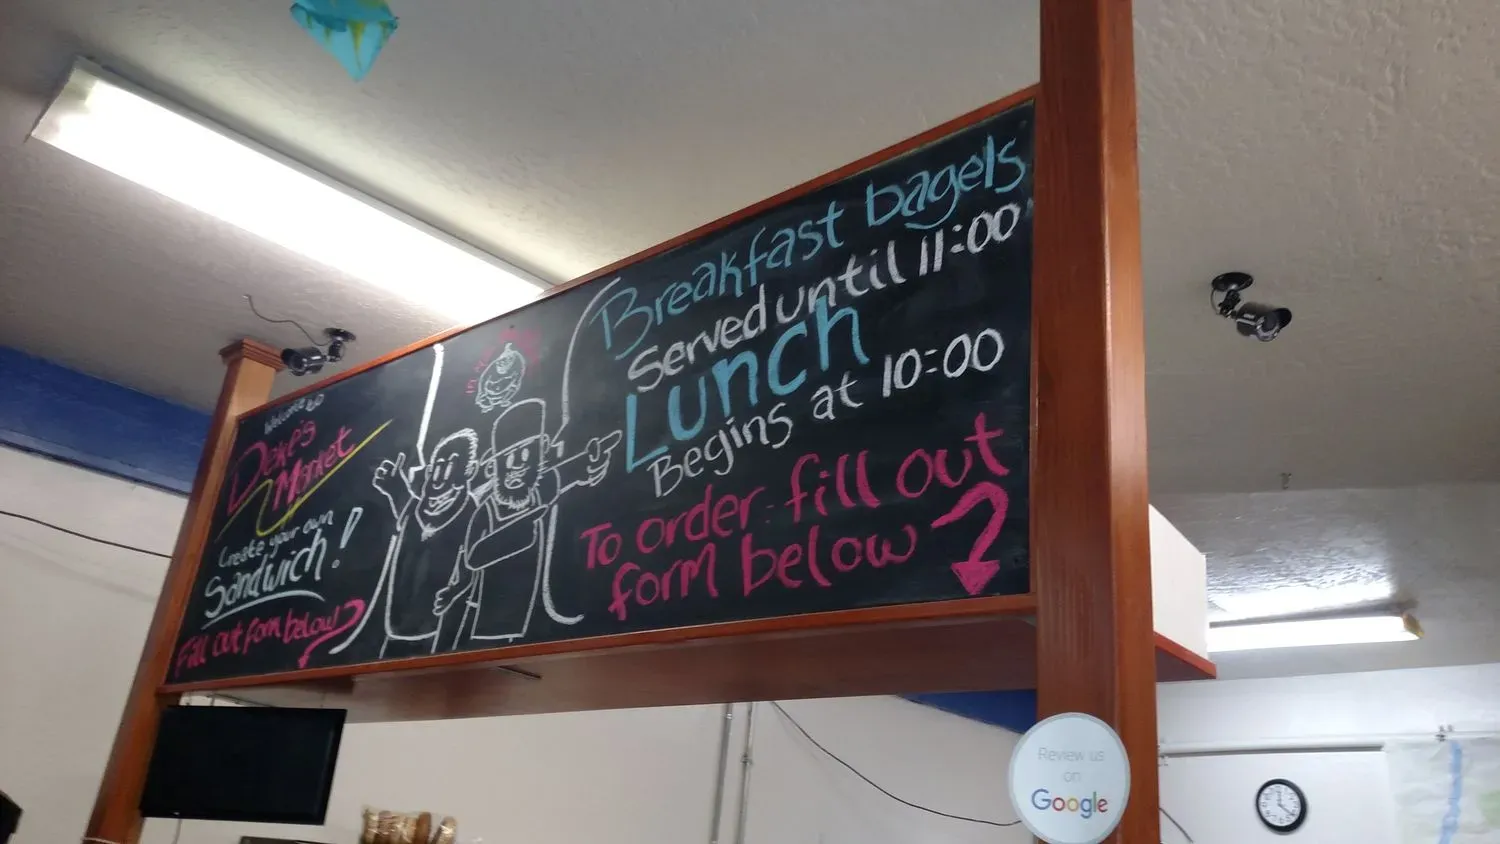 Welcome to
Deke's
Market
Create your own
Sandwich!
Fill out form below!
Breakfast bagels
Served until 11:00
Lunch
Begins at 10:00
To order: fill out
form below
Review us
on
Google